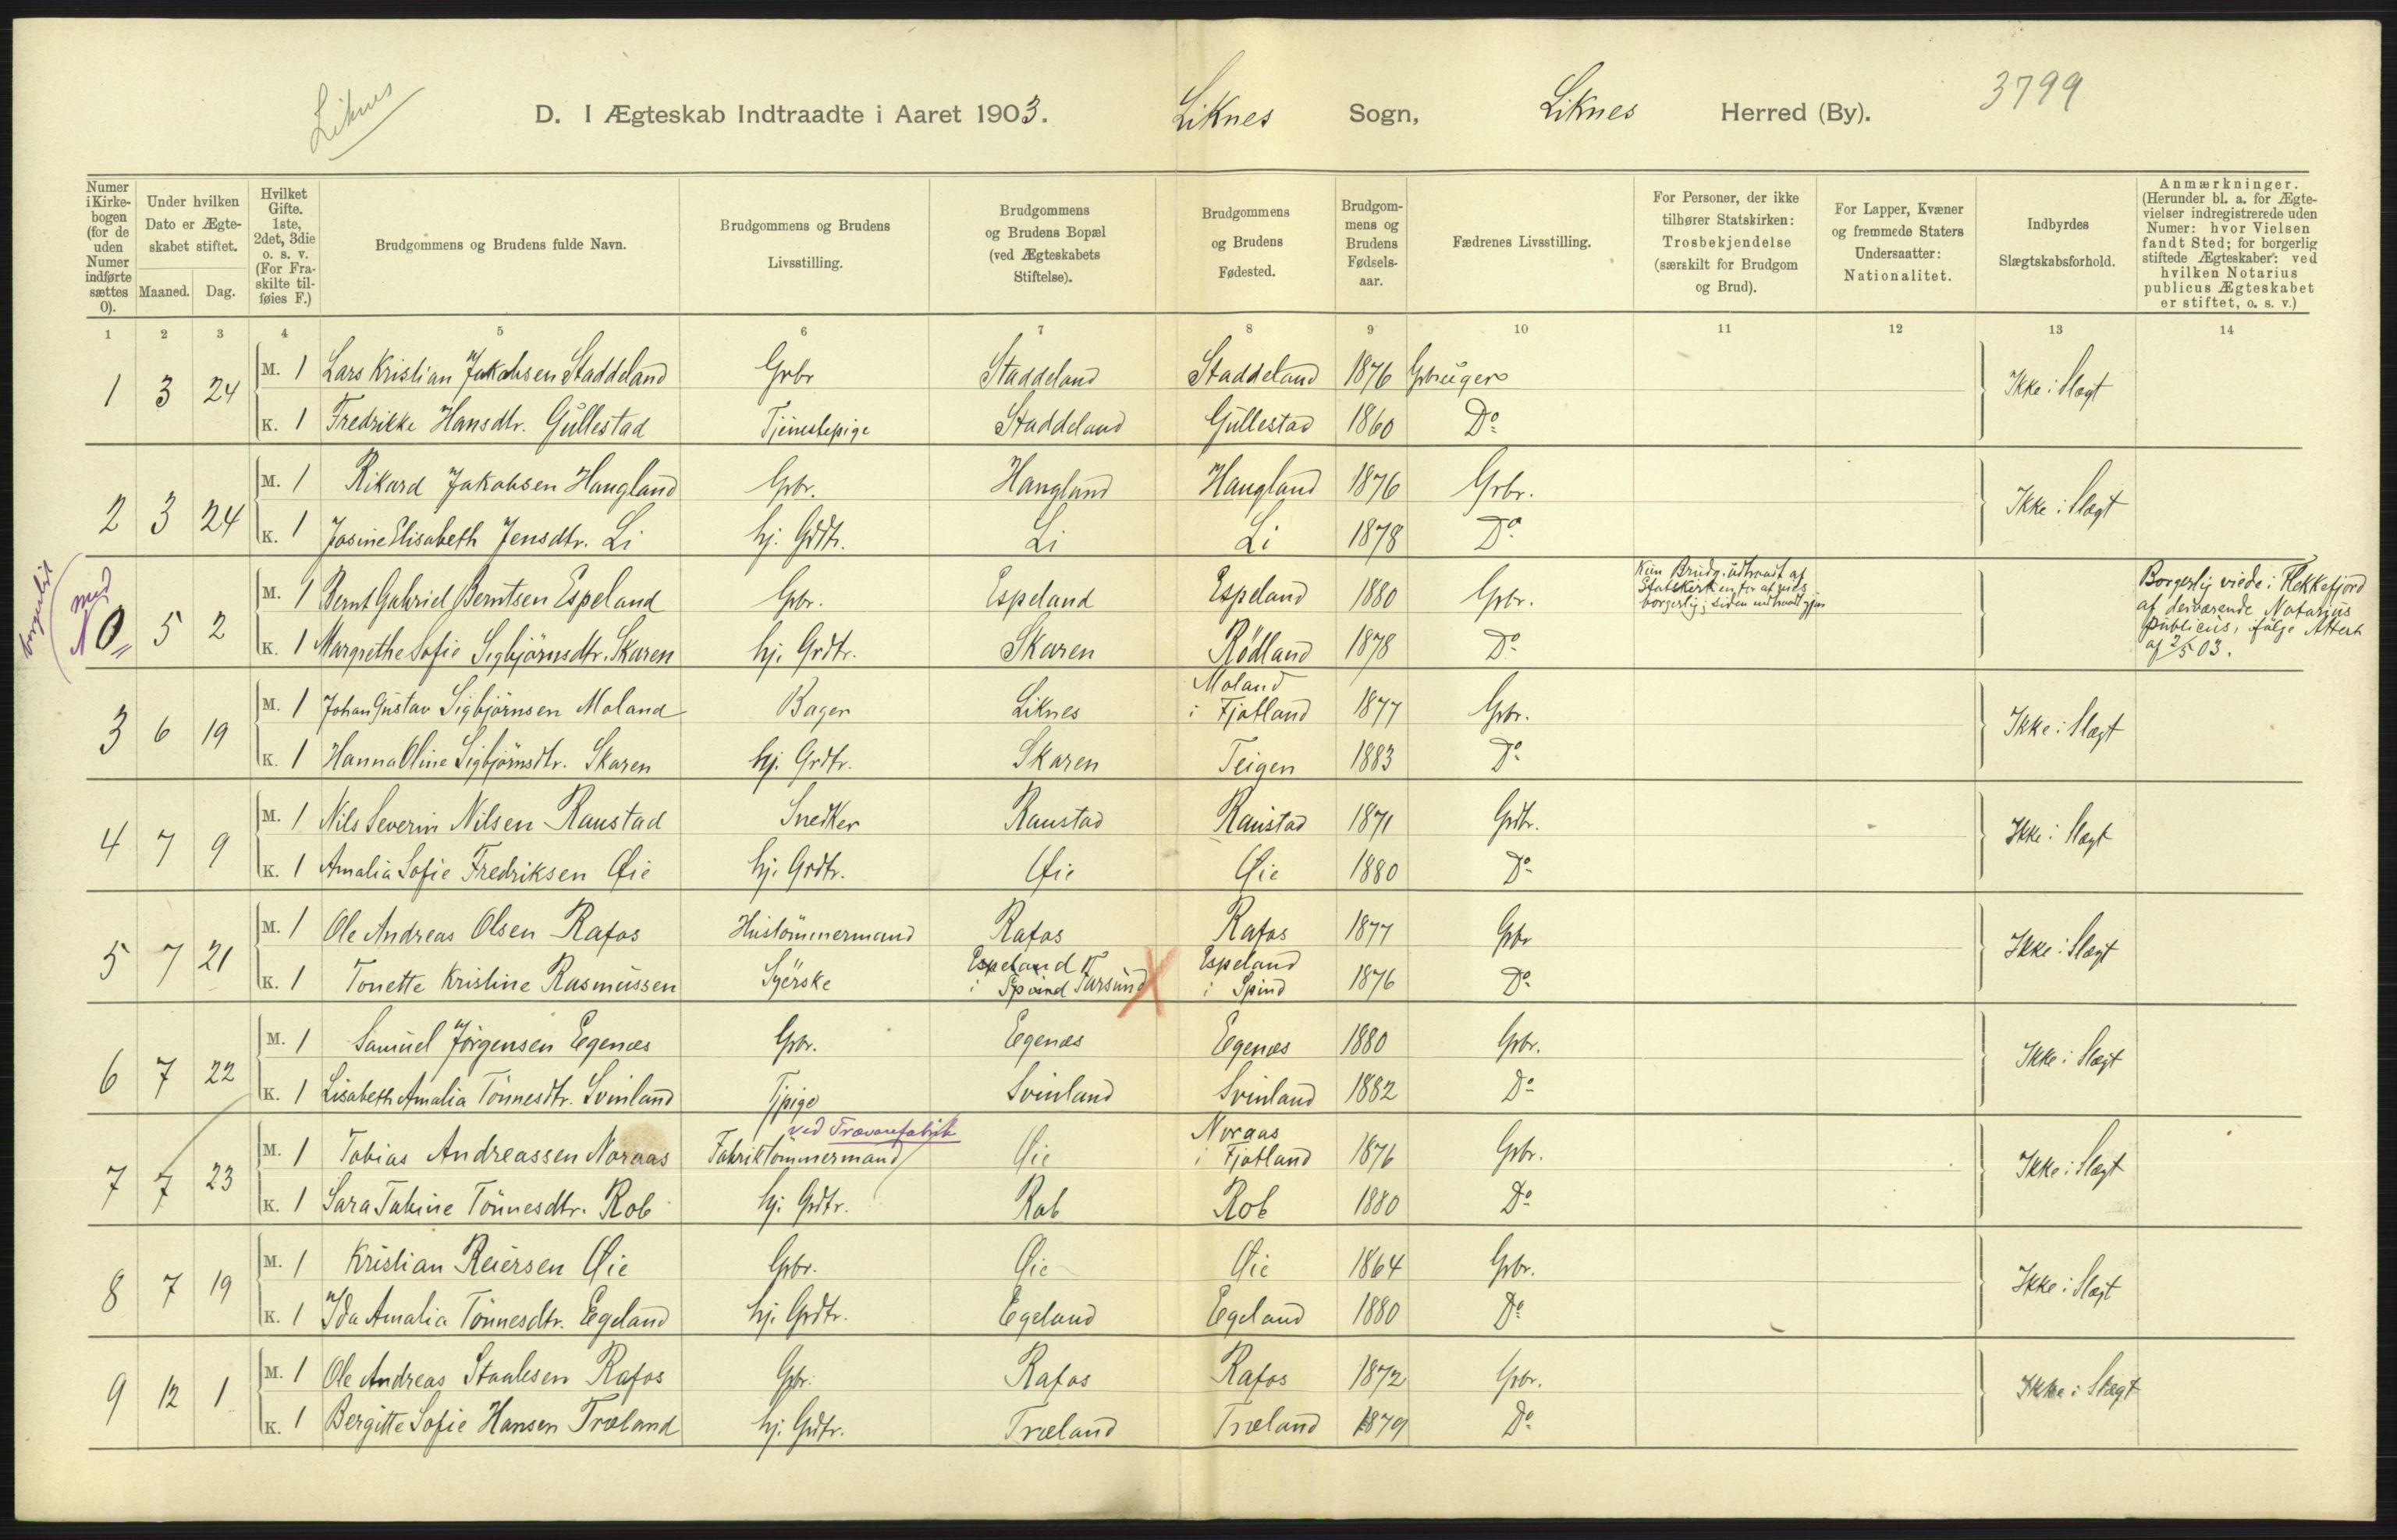 Liknes
D. I Ægteskab Indtraadte i Aaret 1903. Liknes Sogn, Liknes Herred (By). 3799
Numer i Kirkebogen (for de uden Numer indførte sættes 0).
Under hvilken Dato er Ægteskabet stiftet.
Maaned. Dag.
Hvilket Gifte. 1ste, 2det, 3die o. s. v. (For Fraskilte tilføies F.)
Brudgommens og Brudens fulde Navn.
Brudgommens og Brudens Livsstilling.
Brudgommens og Brudens Bopæl (ved Ægteskabets Stiftelse).
Brudgommens og Brudens Fødested.
Brudgommens og Brudens Fødselsaar.
Fædrenes Livsstilling.
For Personer, der ikke tilhører Statskirken: Trosbekjendelse (særskilt for Brudgom og Brud).
For Lapper, Kvæner og fremmede Staters Undersaatter: Nationalitet.
Indbyrdes Slægtskabsforhold.
Anmærkninger. (Herunder bl. a. for Ægtevielser indregistrerede uden Numer: hvor Vielsen fandt Sted; for borgerlig stiftede Ægteskaber: ved hvilken Notarius publicus Ægteskabet er stiftet, o. s. v.)
1 2 3 4 5 6 7 8 9 10 11 12 13 14
1 3 24 M. 1 Lars Kristian Jakobsen Staddeland Grbr Staddeland Staddeland 1876 Gbruger Ikke i Slægt
K. 1 Fredrikke Hansdtr. Gullestad Tjenestepige Staddeland Gullestad 1860 Do
2 3 24 M. 1 Rikard Jakobsen Haugland Gbr. Haugland Haugland 1876 Grbr. Ikke i Slægt
K. 1 Josine Elisabeth Jensdtr. Li hj. Grdtr. Li Li 1878 Do
borgerlist med
0 5 2 M. 1 Bernt Gabriel Berntsen Espeland Gbr. Espeland Espeland 1880 Gbr.
Kun Brudg. udtraadt af
Statskirken
borgerlig; siden
Borgerlig viede i Flekkefjord
af derværende Notarius
publicus, ifølge Attest
af 2/5 03.
K. 1 Margrethe Sofie Sigbjörnsdtr. Skaren hj. Grdtr. Skaren Rödland 1878 Do
3 6 19 M. 1 Johan Gustav Sigbjörnsen Moland Bager Liknes Moland i Fjotland 1877 Gbr. Ikke i Slægt
K. 1 Hanna Oline Sigbjörnsdtr. Skaren hj. Grdtr. Skaren Teigen 1883 Do
4 7 9 M. 1 Nils Severin Nilsen Raustad Snedker Raustad Raustad 1871 Grdbr. Ikke i Slægt
K. 1 Amalia Sofie Fredriksen Øie hj. Grdtr. Øie Øie 1880 Do
5 7 21 M. 1 Ole Andreas Olsen Rafos Hustömmermand Rafos Rafos 1877 Gbr Ikke i Slægt
K. 1 Tonette Kristine Rasmussen Syerske Espeland i Spind Farsund X Espeland i Spind 1876 Do
6 7 22 M. 1 Samuel Jörgensen Egenæs Gbr. Egenæs Egenæs 1880 Gbr. Ikke i Slægt
K. 1 Lisabeth Amalia Tönnesdtr. Svinland Tjpige Svinland Svinland 1882 Do
ved Trævarefabrik
7 7 23 M. 1 Tobias Andreassen Noraas Fabriktömmermand Øie Noraas i Fjotland 1876 Gbr. Ikke i Slægt
K. 1 Sara Tabine Tönnesdtr. Rob hj. Grdtr. Rob Rob 1880 Do
8 7 19 M. 1 Kristian Reiersen Øie Gbr. Øie Øie 1864 Gbr. Ikke i Slægt
K. 1 Ida Amalia Tönnesdtr. Egeland hj. Grdtr. Egeland Egeland 1880 Do
9 12 1 M. 1 Ole Andreas Staalesen Rafos Gbr. Rafos Rafos 1872 Gbr. Ikke i Slægt
K. 1 Bergitte Sofie Hansen Træland hj. Grdtr. Træland Træland 1879 Do